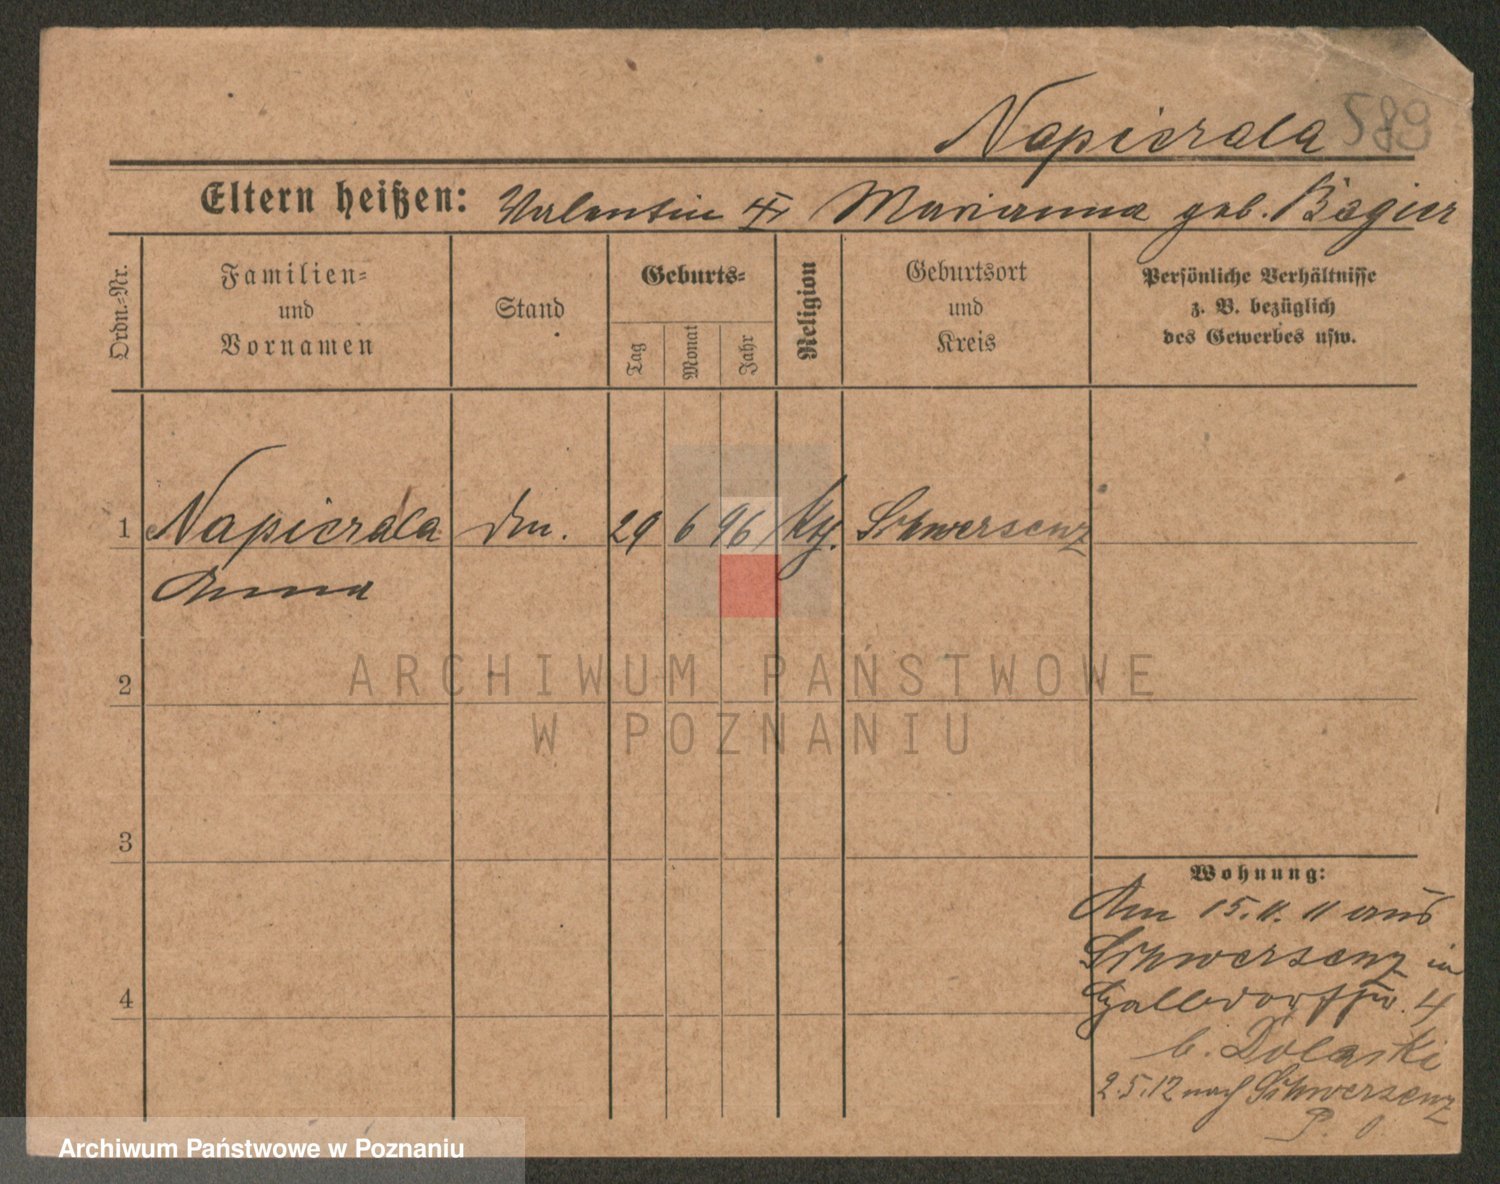 Napierala 589
Eltern heißen: Valentin Marianna geb. Bägier
Ordn.-Nr.
Familien-
und
Vornamen
Stand
Geburts-
Tag
Monat
Jahr
Religion
Geburtsort
und
Kreis
Persönliche Verhältnisse
z. B. bezüglich
des Gewerbes usw.
1 Napierala 29 6 96 Kth. Schwersenz
Anna
2
3
4
Wohnung:
Am 15.11.11 aus
Schwersenz in
4
b. Dolaski
2.5.12 nach Schwersenz
P.
ARCHIWUM PAŃSTWOWE
W POZNANIU
Archiwum Państwowe w Poznaniu